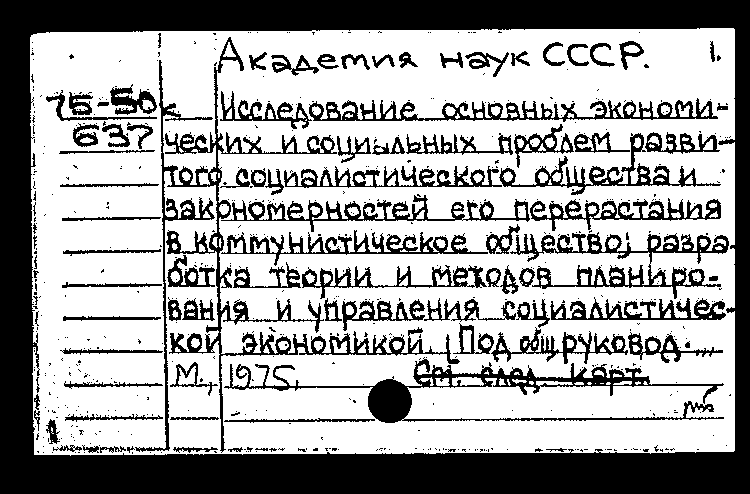 Академия наук СССР. 1.
75-50к Исследование основных экономи-
637 ческих и социальных проблем разви-
того социалистического общества и
закономерностей его перерастания
в коммунистическое общество; разра-
ботка теории и методов планиро-
вания и управления социалистичес-
кой экономикой. [Под общ руковод....
М., 1975. См. след. карт.